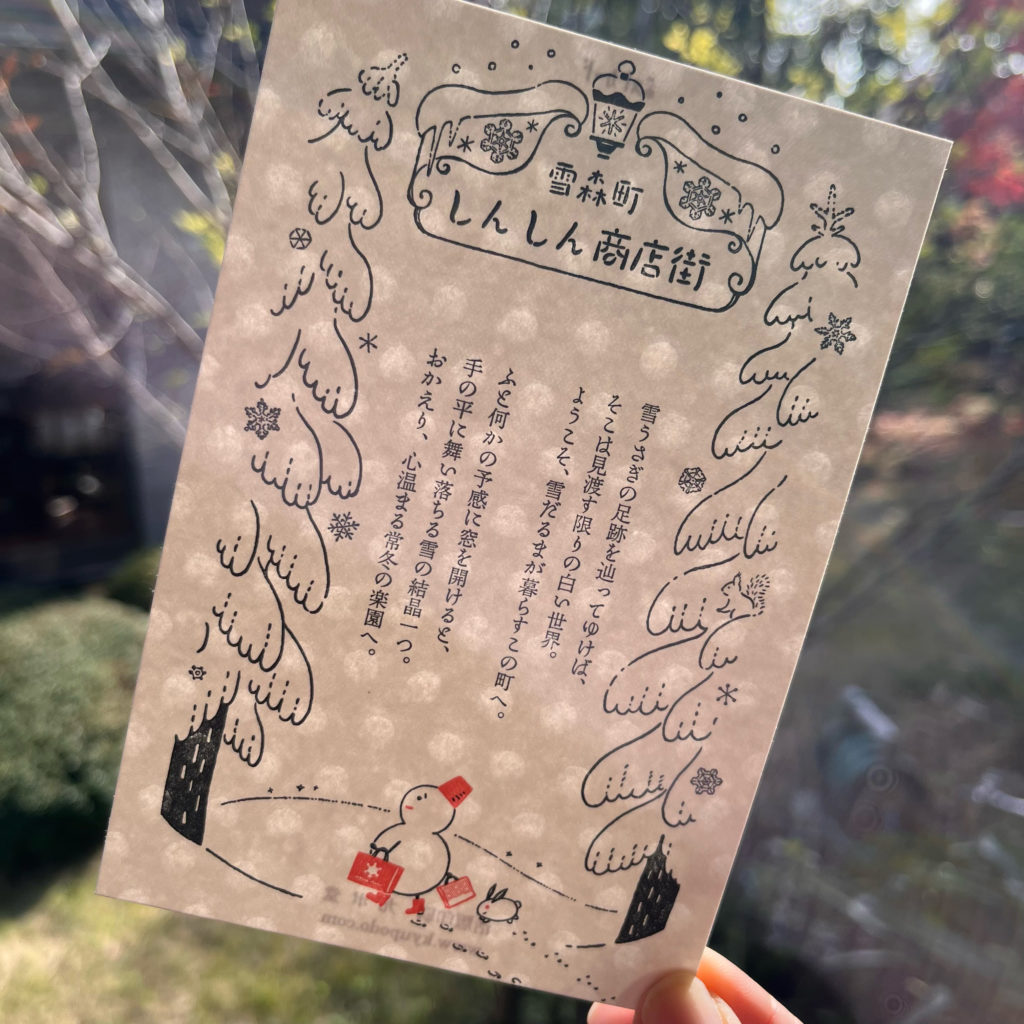 雪森町
しんしん商店街
雪うさぎの足跡を辿ってゆけば、
そこは見渡す限りの白い世界。
ようこそ、雪だるまが暮らすこの町へ。
ふと何かの予感に窓を開けると、
手の平に舞い落ちる雪の結晶一つ。
おかえり、心温まる常冬の楽園へ。
www.kyupodo.com